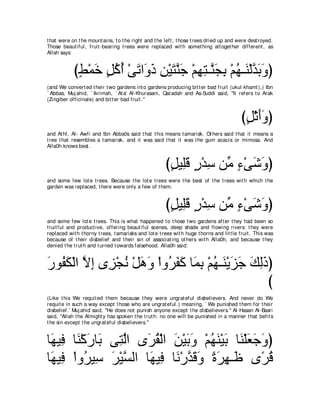 that were on the mountains, to the right and the left, those trees dried up and were destroyed.
Those beautiful, fruit-bearing trees were replaced with something altogether different, as
Allah says:
(وَبَدَّلْنَـهُمْ بِجَنَّـتَيْهِمْ جَنَّتَيْنِ ذَوَاتَىْ أُكُلٍ خَمْطٍ)
(and We converted their two gardens into gardens producing bitter bad fruit (ukul khamt),) Ibn
`Abbas, Mujahid, `Ikrimah, `Ata' Al-Khurasani, Qatadah and As-Suddi said, "It refers to Arak
(Zingiber officinale) and bitter bad fruit.''
(وَأَثْلٍ)
and Athl, Al-`Awfi and Ibn `Abbas said that this means tamarisk. Others said that it means a
tree that resembles a tamarisk, and it was said that it was the gum acacia or mimosa. And
Allah knows best.
(وَشَىْءٍ مِّن سِدْرٍ قَلِيلٍ)
and some few lote trees. Because the lote trees were the best of the trees with which the
garden was replaced, there were only a few of them.
(وَشَىْءٍ مِّن سِدْرٍ قَلِيلٍ)
and some few lote trees. This is what happened to those two gardens after they had been so
fruitful and productive, offering beautiful scenes, deep shade and flowing rivers: they were
replaced with thorny trees, tamarisks and lote trees with huge thorns and little fruit. This was
because of their disbelief and their sin of associating others with Allah, and because they
denied the truth and turned towards falsehood. Allah said:
(ذَلِكَ جَزَيْنَـهُمْ بِمَا كَفَرُواْ وَهَلْ نُجْزِى إِلاَّ الْكَفُورَ
)
(Like this We requited them because they were ungrateful disbelievers. And never do We
requite in such a way except those who are ungrateful.) meaning, `We punished them for their
disbelief.' Mujahid said, "He does not punish anyone except the disbelievers.'' Al-Hasan Al-Basri
said, "Allah the Almighty has spoken the truth: no one will be punished in a manner that befits
the sin except the ungrateful disbelievers.''
(وَجَعَلْنَا بَيْنَهُمْ وَبَيْنَ الْقُرَى الَّتِى بَارَكْنَا فِيهَا
قُرًى ظَـهِرَةً وَقَدَّرْنَا فِيهَا السَّيْرَ سِيرُواْ فِيهَا